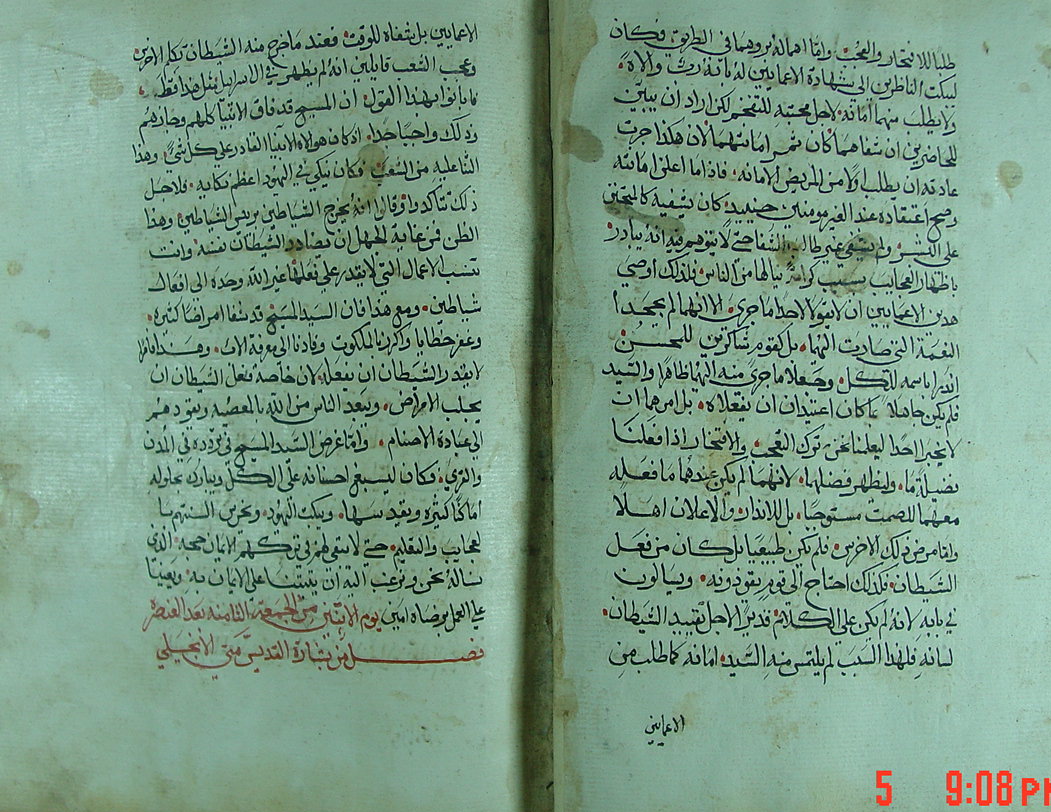 طلبًا للافتخار والعجب وامّا اهماله بروهما في الطريق فكان
ليبكت الناظرين الى شهادة الاعمايين له بانه ربّ والاه
ولا يطلب منهما امانه لاجل محبته للتفخم لكن اراد ان يبيّن
للحاضرين ان شفاهما كان ثمر امانتهما لان هكذا جرت
عادته ان يطلب اولا من المريض الامانه فاذا ما اعلن امانته
وصح اعتقاده عند الغير مومنين حينيد كان يشفيه كالمتحنن
على البشر ولم يشفي غير طالب الشفا حتي لا يتوهم فيه انه يبادر
باظهار العجايب بسبب كرامة ينالها من الناس فلذلك اوصي
هدين الاعمايين ان لا يقولا لاحد ما جري الا انهما لم يجحدا
النعمة التي صارت اليهما بل كقوم شاكرين للمحسن
اشهرا باسمه للكل وجعلا ما جري منه اليهما ظاهرا والسيد
فلم يكن جاهلا بما كانا عتيدان ان يفعلاه بل امرهما ان
لا يخبرا احدا ليعلمنا نحن ترك العجب والافتخار اذا فعلنا
فضيلة ما وليظهر فضلهما لانهما لم يكن عندهما ما فعله
معهما للصمت مستوجبا بل للاندار والاعلان اهلا
وامّا مرض ذلك الاخرس فلم يكن طبيعيا بل كان من فعل
الشيطان فلذلك احتاج الى قوم يقودونه ويسالون
في بابه لانه لم يكن على الكلام قدير لاجل تقييد الشيطان
لسانه فلهذا السبب لم يلتمس منه السيد امانه كما طلب من
الاعمايين
الاعمايين بل شفاه للوقت فعند ما خرج منه الشيطان تكلم الاخرس
وعجب الشعب قايلين انه لم يظهر في الاسراييل مثل هذا قط
كما بانوا بهذا القول ان المسيح قد فاق الانبيا كلهم وجازهم
وذلك واجبا جدا اذ كان هو الاه الانبيا القادر على كل شي وهذا
الثنا عليه من الشعب فكان ينكي في اليهود اعظم نكايه فلاجل
ذلك تأكدوا وقالوا انه يخرج الشياطين بريس الشياطين وهذا
الظن في غاية الجهل ان يضادد الشيطان نفسه وانت
تنسب الاعمال التي لا يقدر على فعلها غير الله وحده الى افعال
شياطين ومع هذا فان السيد المسيح قد شفا امراضا كثيره
وغفر خطايا وكرز بالملكوت وقادنا الى معرفة الاب وهذا فانها
لا يقدر الشيطان ان يفعله لان خاصة فعل الشيطان ان
يجلب الامراض ويبعد الناس من الله بالمعصيه ويقودهم
الى عبادة الاصنام وامّا غرض السيد المسيح في تردده في المدن
والقري فكان ليسبغ احسانه على الكل ويبارك بحلوله
اماكنا كثيره ويفيد سها ويبكت اليهود ويخرس السنتهم بالـ
لعجايب والتعليم حتي لا يبقي لهم في تركهم الايمان حجه الذي
نساله نحن ونرغب اليه ان يثبتنا على الايمان به ويعيننا
على العمل برضاه امين يوم الاثنين من الجمعة الثامنه بعد العنصره
فصل من بشارة القديس متي الانجيلي
5 9:08 PM